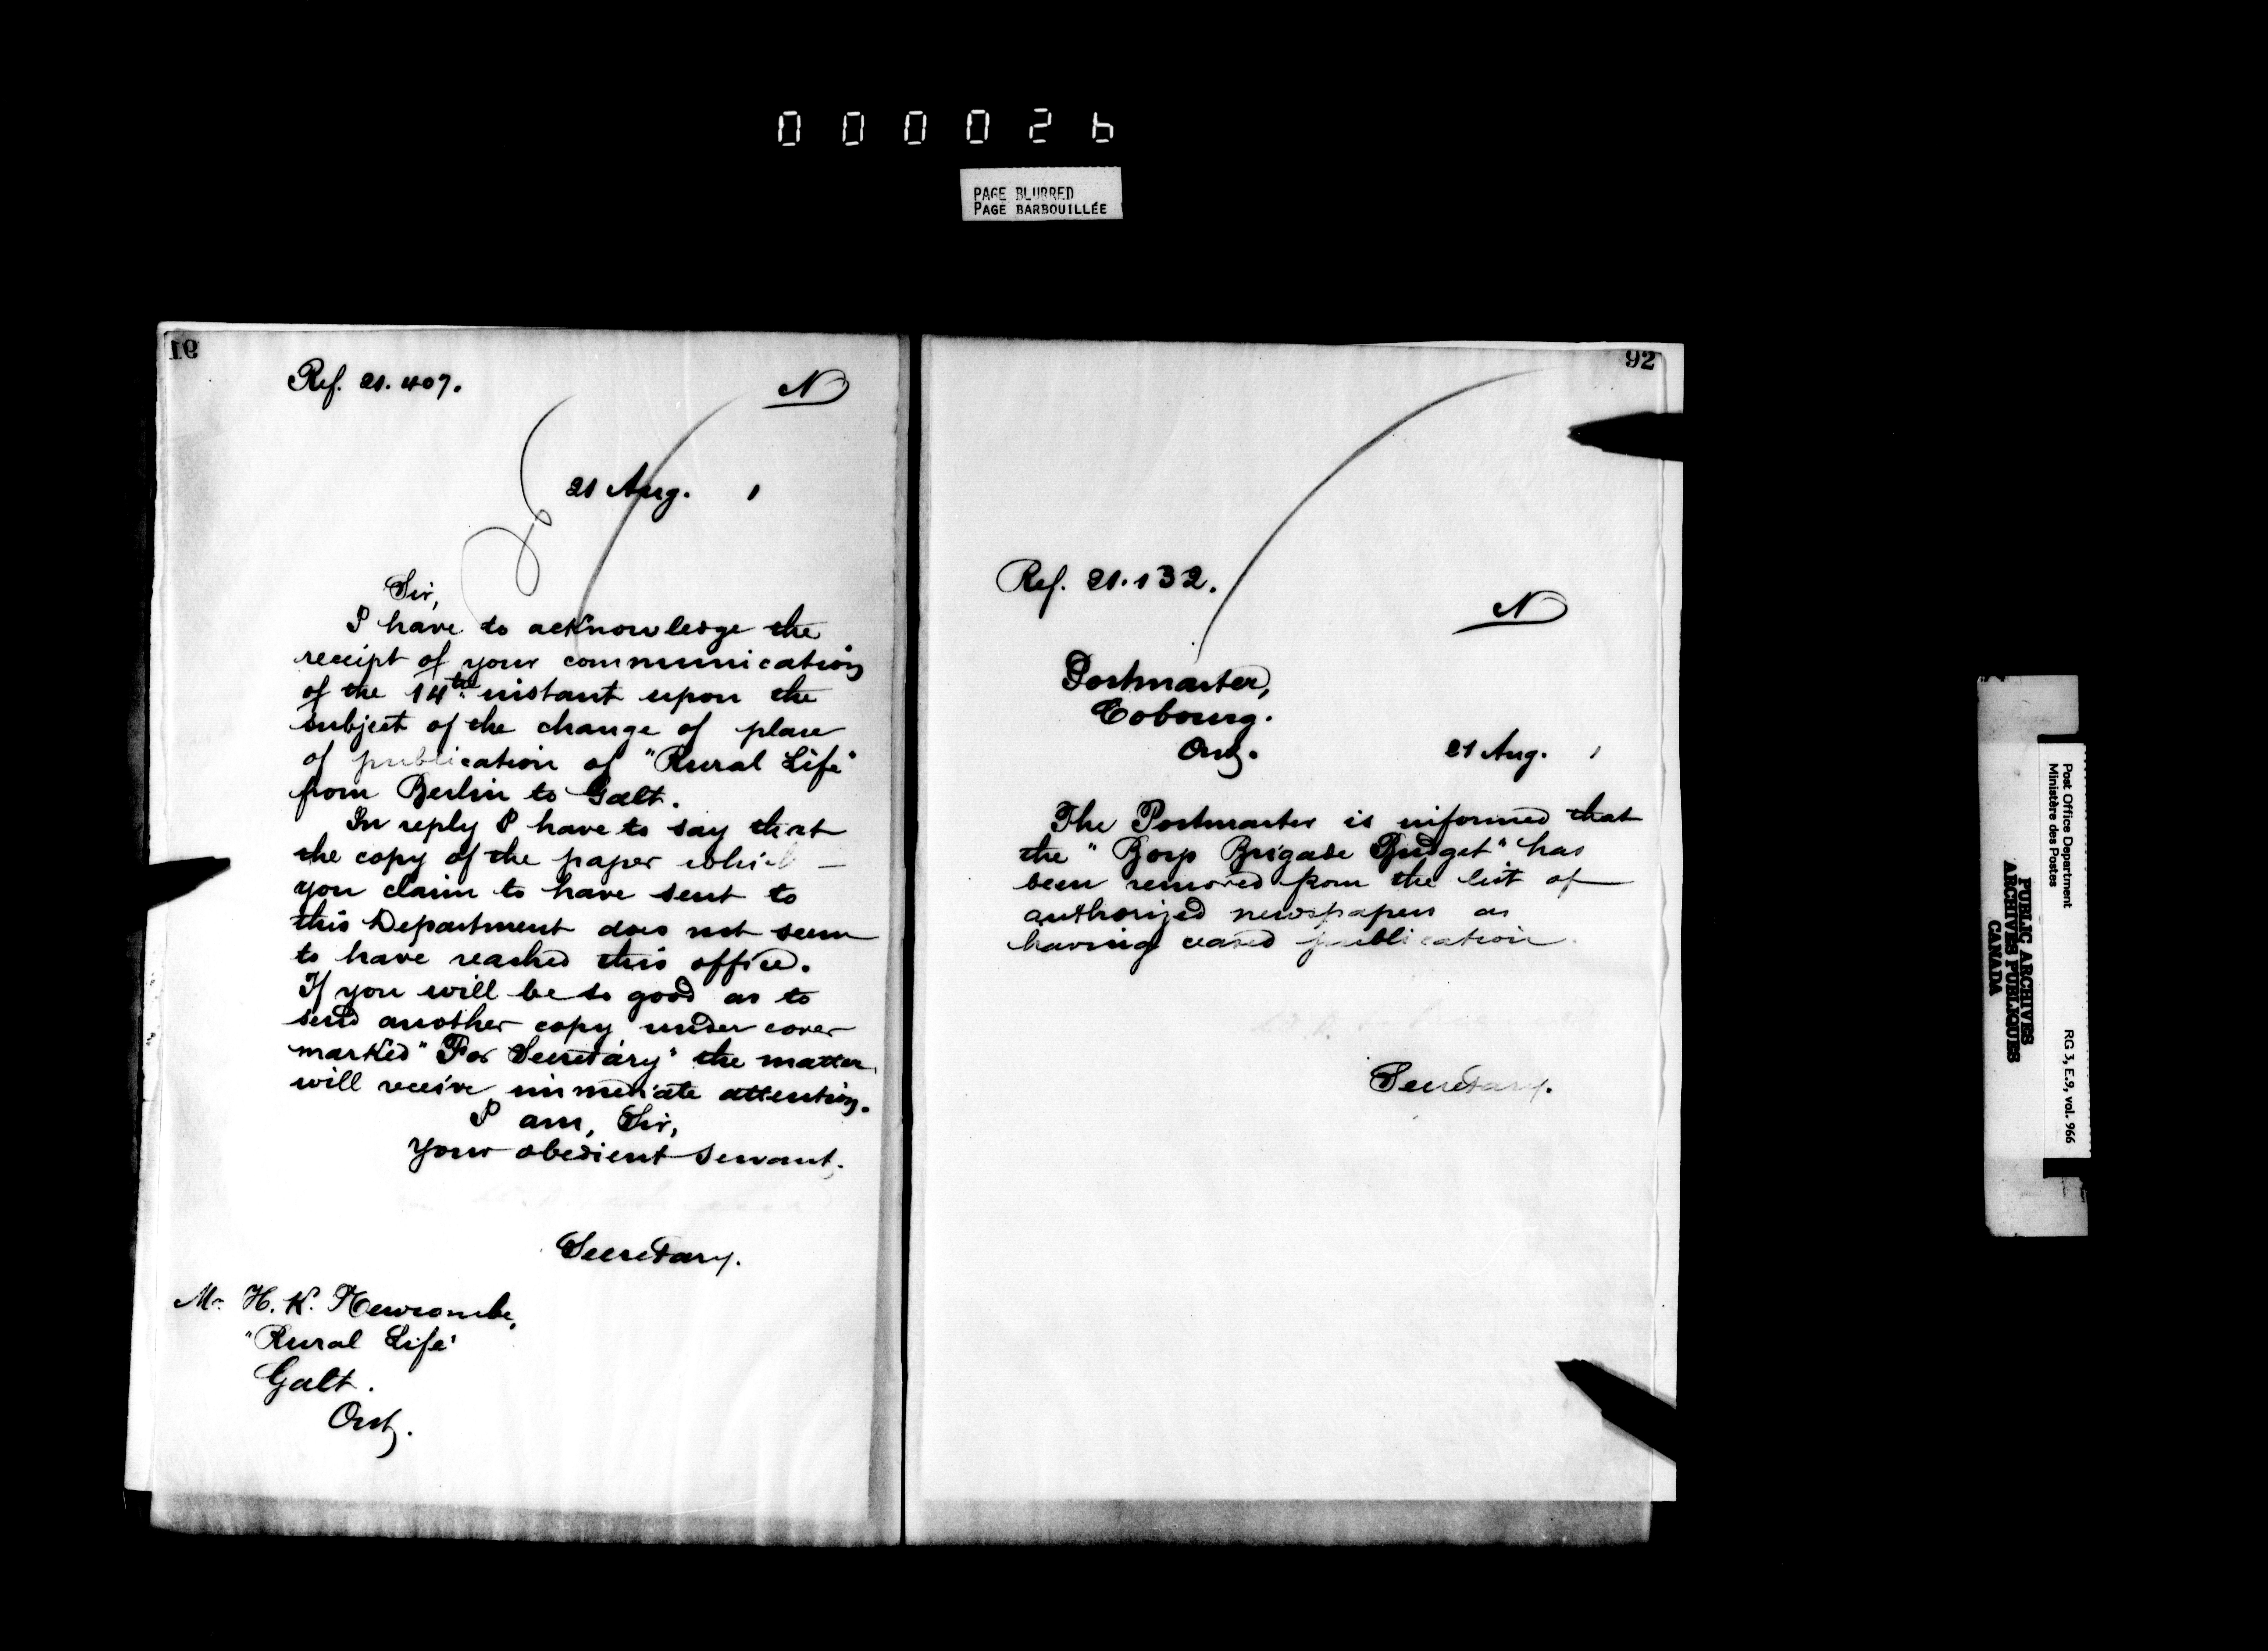 000026
PAGE BLURRED
PAGE BARBOUILLÉE
91
Ref. 21.407.
N
21 Aug. 1
Sir,
I have to acknowledge the
receipt of your communication
of the 14th instant upon the
subject of the change of place
of publication of "Rural Life"
from Berlin to Galt.
In reply I have to say that
the copy of the paper which
you claim to have sent to
this Department does not seem
to have reached this office.
If you will be so good as to
send another copy under cover
marked "For Secretary" the matter
will receive immediate attention.
I am, Sir,
Your obedient servant,
Secretary.
Mr. H. K. Newcombe,
"Rural Life"
Galt.
Ont.
92
Ref. 21.132.
N
Postmaster,
Cobourg.
Ont.
21 Aug. 1
The Postmaster is informed that
the "Boys Brigade Budget" has
been removed from the list of
authorized newspapers as
having ceased publication.
Secretary.
Post Office Department
Ministère des Postes
RG 3, E.9, vol. 966
PUBLIC ARCHIVES
ARCHIVES PUBLIQUES
CANADA